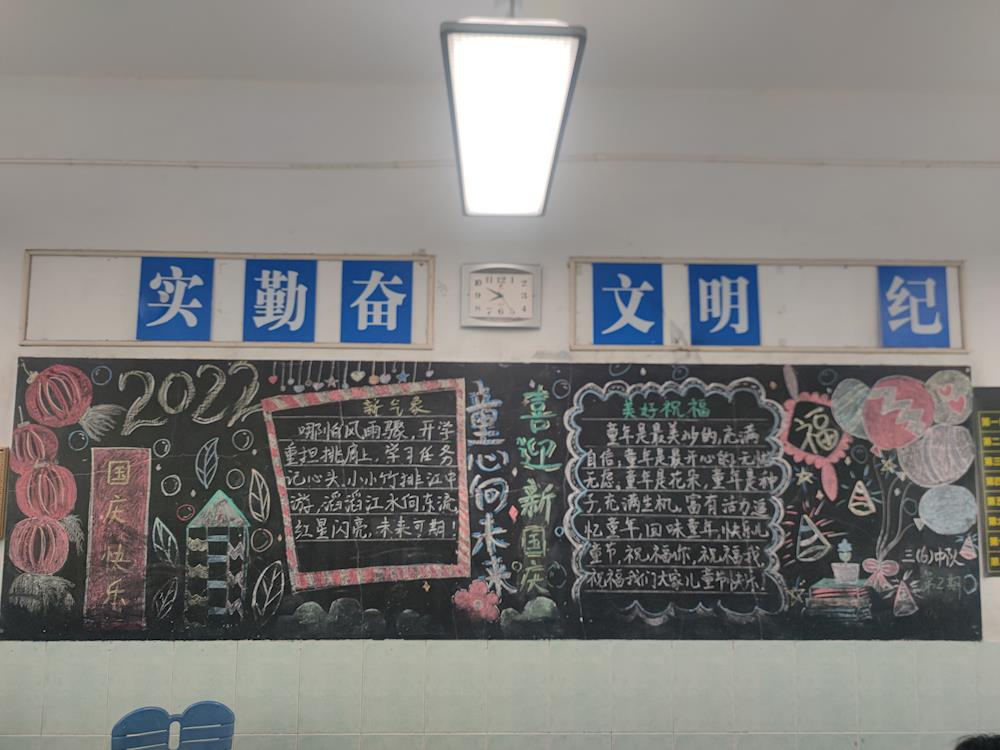 实 勤 奋
文 明 纪
2022
国庆快乐
新气象
哪怕风雨骤，开学
重担挑肩上，学习任务
记心头，小小竹排江中
游，滔滔江水向东流，
红星闪亮，未来可期！
童心向未来
喜迎新国庆
美好祝福
童年是最美妙的，充满
自信，童年是最开心的，无忧
无虑，童年是花朵，童年是种
子，充满生机，富有活力，追
忆童年，回味童年，快乐儿
童节，祝福你，祝福我，
祝福我们大家儿童节快乐！
福
三(6)中队
第2期